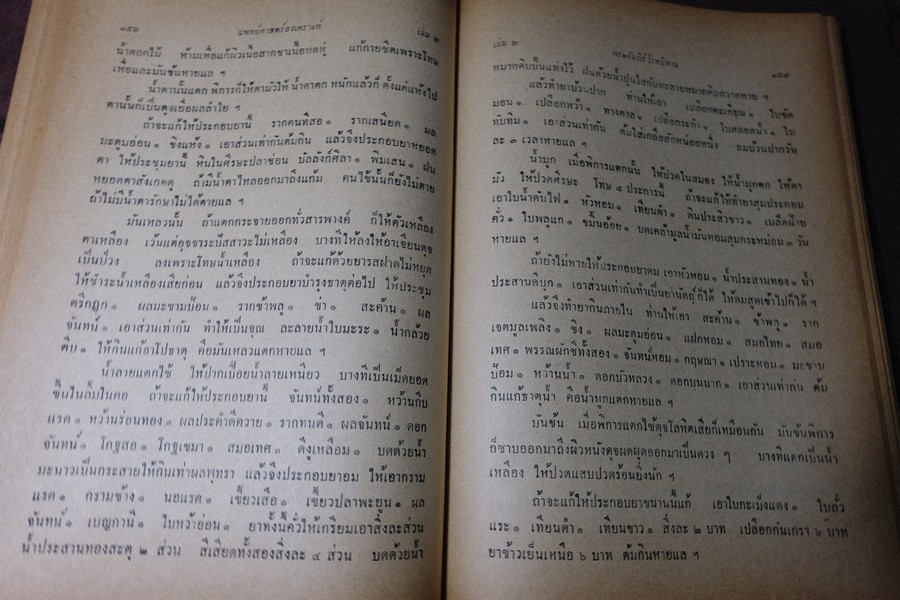 ๑๕๖ แพทย์ศาสตร์สงเคราะห์ เล่ม ๒
น้ำดอกไม้ ห้ามเหื่อแก้ผิวเนื้อสากชาเนื้อหดหู่ แก้กายซีดเพราะโทษ
เหื่อและมันข้นหายแล ฯ
น้ำตานั้นแตก พิการก็ให้ตามัวให้ น้ำตาตก หนักแล้วก็ ตั้งแต่แห้งไป
ตานั้นก็เป็นดุจเยื่อผลลำใย ฯ
ถ้าจะแก้ให้ประกอบยานี้ รากคนทีสอ ๑ รากเสนียด ๑ ผล
มะตูมอ่อน ๑ ขิงแห้ง ๑ เอาส่วนเท่ากันต้มกิน แล้วจึงประกอบยาหยอด
ตา ให้ประชุมยานี้ หินในศีรษะปลาช่อน บัลลังก์ศิลา ๑ พิมเสน ๑ ฝน
หยอดตาสังเกตดู ถ้ามีน้ำตาไหลออกมาถึงแก้ม คนไข้นั้นก็ยังไม่ตาย
ถ้าไม่มีน้ำตารักษาไม่ได้ตายแล ฯ
มันเหลวนั้น ถ้าแตกกระจายออกทั่วสารพางค์ ก็ให้ตัวเหลือง
ตาเหลือง เว้นแต่อุจจาระปัสสาวะไม่เหลือง บางทีให้ลงให้อาเจียนดุจ
เป็นป่วง ลงเพราะโทษน้ำเหลือง ถ้าจะแก้ด้วยยารสฝาดไม่หยุด
ให้ชำระน้ำเหลืองเสียก่อน แล้วจึงประกอบยาบำรุงธาตุต่อไป ให้ประชุม
ตรีกฏุก ๑ ผลมะขามป้อม ๑ รากช้าพลู ๑ ข่า ๑ สะค้าน ๑ ผล
จันทน์ ๑ เอาส่วนเท่ากัน ทำให้เป็นจุณ ละลายน้ำใบมะระ ๑ น้ำกล้วย
ตีบ ๑ ให้กินแก้อาโปธาตุ คือมันเหลวแตกหายแล ฯ
น้ำลายแตกไซ้ ให้ปากเปื่อยน้ำลายเหนียว บางทีเป็นเม็ดยอด
ขึ้นในลิ้นในคอ ถ้าจะแก้ให้ประกอบยานี้ จันทน์ทั้งสอง ๑ หว้านกีบ
แรด ๑ หว้านร่อนทอง ๑ ผลประคำดีควาย ๑ รากทนดี ๑ ผลจันทน์ ๑ ดอก
จันทน์ ๑ โกฐสอ ๑ โกฐเขมา ๑ สมอเทศ ๑ ดีงูเหลือม ๑ บดด้วยน้ำ
มะนาวเป็นกระสายให้กินเท่าผลพุทรา แล้วจึงประกอบยาอม ให้เอากราม
แรด ๑ กรามช้าง ๑ นอแรด ๑ เขี้ยวเสือ ๑ เขี้ยวปลาพะยูน ๑ ผล
จันทน์ ๑ เบญกานี ๑ ใบหว้าอ่อน ๑ ยาทั้งนี้คั่วให้เกรียมเอาสิ่งละส่วน
น้ำประสานทองสะตุ ๒ ส่วน สีเสียดทั้งสองสิ่งละ ๔ ส่วน บดด้วยน้ำ
เล่ม ๒ พระคัมภีร์ โรคนิทาน ๑๕๗
หมากดิบปั้นแท่งไว้ ฝนด้วยน้ำปูนใสกับทะลายหมากดิบกวาดหาย ฯ
แล้วทำยาบ้วนปาก ท่านให้เอา เปลือกตะเคียน ๑ ใบขัด
มอน ๑ เปลือกหว้า ๑ หางตาล ๑ เปลือกระกำ ๑ ใบสลอดน้ำ ๑ ใบ
ทับทิม ๑ เอาส่วนเท่ากัน ต้มใส่เกลือสักหน่อยหนึ่ง อมบ้วนปากวัน
ละ ๓ เวลาหายแล ฯ
น้ำมูก เมื่อพิการแตกนั้น ให้ปวดในสมอง ให้น้ำมูกตก ให้ตา
มัว ให้ปวดศีรษะ โทษ ๔ ประการนี้ ถ้าจะแก้ให้ทำยาสุมประกอบ
เอาใบน้ำดับไฟ ๑ หัวหอม ๑ เทียนดำ ๑ ดินประสิวขาว ๑ เมล็ดฝ้าย
คั่ว ๑ ใบพลูแก ๑ ขมิ้นอ้อย ๑ บดเคล้ามูลน้ำมันหอมสุมกระหม่อม ๓ วัน
หายแล ฯ
ถ้ายังไม่หายให้ประกอบยาดม เอาหัวหอม ๑ น้ำประสานทอง ๑ น้ำ
ประสานดีบุก ๑ เอาส่วนเท่ากันทำเป็นยานัตถุ์ ก็ได้ ให้ดมสูดเข้าไปก็ได้ ฯ
แล้วจึงทำยากินภายใน ท่านให้เอา สะค้าน ๑ ช้าพลู ๑ ราก
เจตมูลเพลิง ๑ ขิง ๑ ผลมะตูมอ่อน ๑ แฝกหอม ๑ สมอไทย ๑ สมอ
เทศ ๑ พรรณผักชีทั้งสอง ๑ จันทน์หอม ๑ กฤษณา ๑ เปราะหอม ๑ มะขาม
ป้อม ๑ หว้านน้ำ ๑ ดอกบัวหลวง ๑ ดอกบุนนาก ๑ เอาส่วนเท่ากัน ต้ม
กินแก้ธาตุน้ำ คือน้ำมูกแตกหายแล ฯ
มันข้น เมื่อพิการแตกใช้ดุจโลหิตเสียก็เหมือนกัน มันข้นพิการ
ก็ซาบออกมาถึงผิวหนังดุจผดผุดออกมาเป็นดวง ๆ บางทีแตกเป็นน้ำ
เหลือง ให้ปวดแสบปวดร้อนยิ่งนัก ฯ
ถ้าจะแก้ให้ประกอบยาขนานนี้แก้ เอาใบกะเม็งแดง ๑ ใบถั่ว
แระ ๑ เทียนดำ ๑ เทียนขาว ๑ สิ่งละ ๒ บาท เปลือกกันเกรา ๖ บาท
ยาข้าวเย็นเหนือ ๖ บาท ต้มกินหายแล ฯ